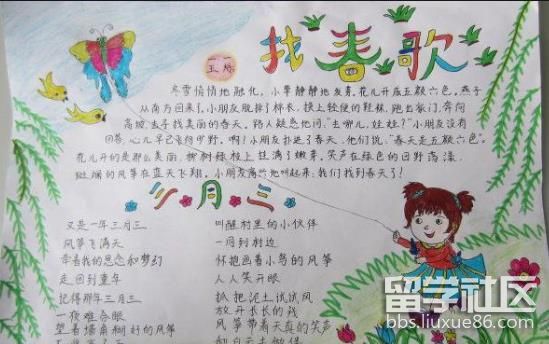 找春歌
五.一班
冬雪悄悄地融化，小草静静地发青。花儿开放五颜六色。燕子
从南方回来了，小朋友脱掉了棉衣，换上轻便的鞋袜，跑出家门，奔向
高坡，去寻找美丽的春天。路人疑惑他问：“去哪儿，娃娃？”小朋友没有
回答，心儿早已飞向田野。啊！小朋友扑进了春天，他们说：“春天是五颜六色”。
花儿开的是那么美丽，柳树绿枝上挂满了嫩芽，笑声在绿色的田野荡漾，
斑斓的风筝在蓝天下翔。小朋友高兴地叫起来：我们找到春天了！
三月三
又是一年三月三
风筝飞满天
牵着我的思念和梦幻
走回到童年
记得那年三月三
一夜难合眼
望着墙角糊好的风筝
叫醒村里的小伙伴
一同到村边
怀抱画着小鸟的风筝
人人笑开眼
抓把泥土试试风
放开长长的线
风筝带着天真的笑声
和白云去做伴
留学社区
bbs.liuxue86.com